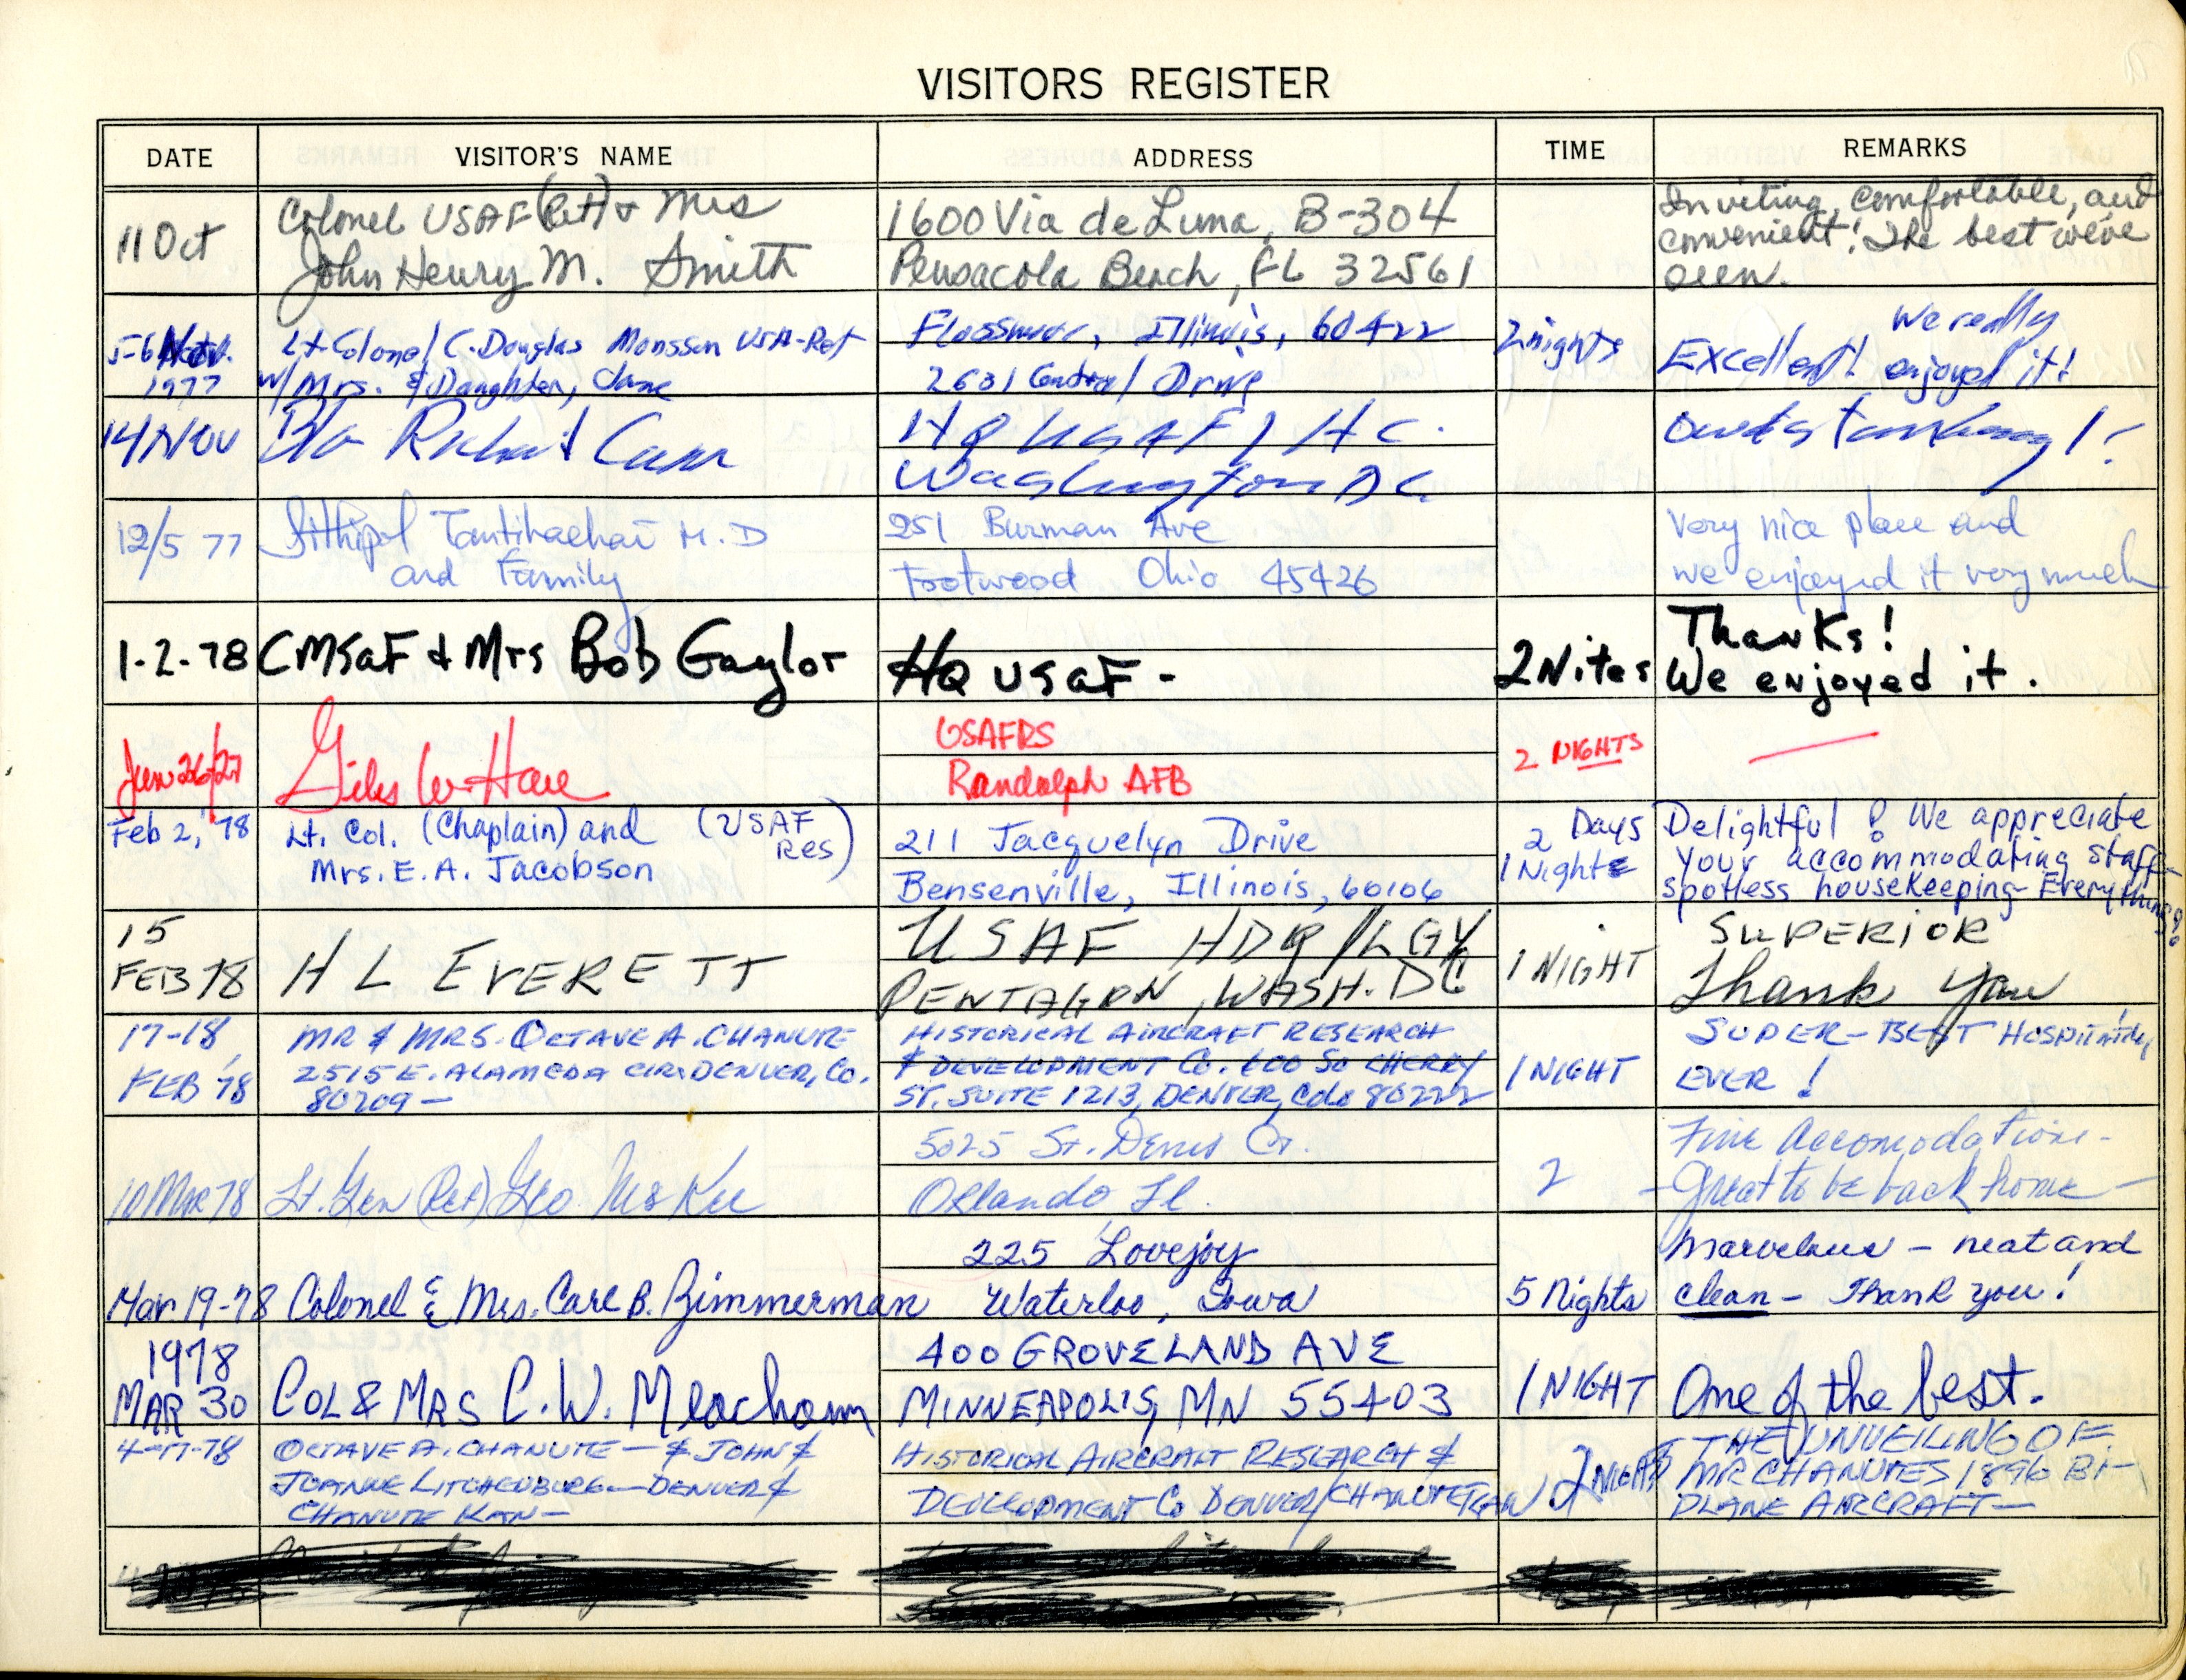 VISITORS REGISTER
DATE VISITOR'S NAME ADDRESS TIME REMARKS
11 Oct
Colonel USAF (Ret) & Mrs
John Henry M. Smith
1600 Via de Luna, B-304
Pensacola Beach, FL 32561
Inviting, comfortable, and
convenient! The best we've
seen.
5-6 Nov.
1977
Lt Colonel C. Douglas Monsson USA-Ret
w/ Mrs. & Daughter, Jane
Flossmoor, Illinois, 60422
2601 Central Drive
2 nights
We really
Excellent! enjoyed it!
14 Nov
Richard Carr
HQ USAF / HC.
Washington DC
Outstanding!!
12/5 77
Sitthipol Tantihachai M.D
and Family
251 Burman Ave
Trotwood Ohio 45426
Very nice place and
we enjoyed it very much
1-2-78
CMSaF & Mrs Bob Gaylor
HQ USaF -
2 Nites
Thanks!
We enjoyed it.
Jan 26/27
Giles W Hare
USAFRS
Randolph AFB
2 NIGHTS
Feb 2, '78
Lt. Col. (Chaplain) and (USAF
Res)
Mrs. E. A. Jacobson
211 Jacquelyn Drive
Bensenville, Illinois, 60106
2 Days
1 Night
Delightful! We appreciate
your accommodating staff-
spotless housekeeping- Everything!
15
FEB 78
H L EVERETT
USAF HDQ/LGY
PENTAGON, WASH. DC
1 NIGHT
SUPERIOR
Thank You
17-18
FEB '78
MR & MRS. OCTAVE A. CHANUTE
2515 E. ALAMEDA CIR. DENVER, CO.
80209 -
HISTORICAL AIRCRAFT RESEARCH
& DEVELOPMENT CO. 600 SO CHERRY
ST. SUITE 1213, DENVER, Colo 80222
1 NIGHT
SUPER - BEST HOSPITALITY
EVER!
10 Mar 78
Lt. Gen (Ret) Geo McKee
5025 St. Denis Ct.
Orlando Fl.
2
Fine Accomodations -
- Great to be back home -
Mar. 19-78
Colonel & Mrs. Carl B. Zimmerman
225 Lovejoy
Waterloo, Iowa
5 Nights
Marvelous - neat and
clean - Thank you!
1978
MAR 30
COL & MRS C. W. Meacham
400 GROVELAND AVE
MINNEAPOLIS, MN 55403
1 NIGHT
One of the best.
4-17-78
OCTAVE A. CHANUTE - & JOHN &
JOANNE LITCHENBURG - DENVER &
CHANUTE KAN -
HISTORICAL AIRCRAFT RESEARCH &
DEVELOPMENT Co DENVER/CHANUTE KAN
2 NIGHTS
THE UNVEILING OF
MR CHANUTES 1896 BI-
PLANE AIRCRAFT -